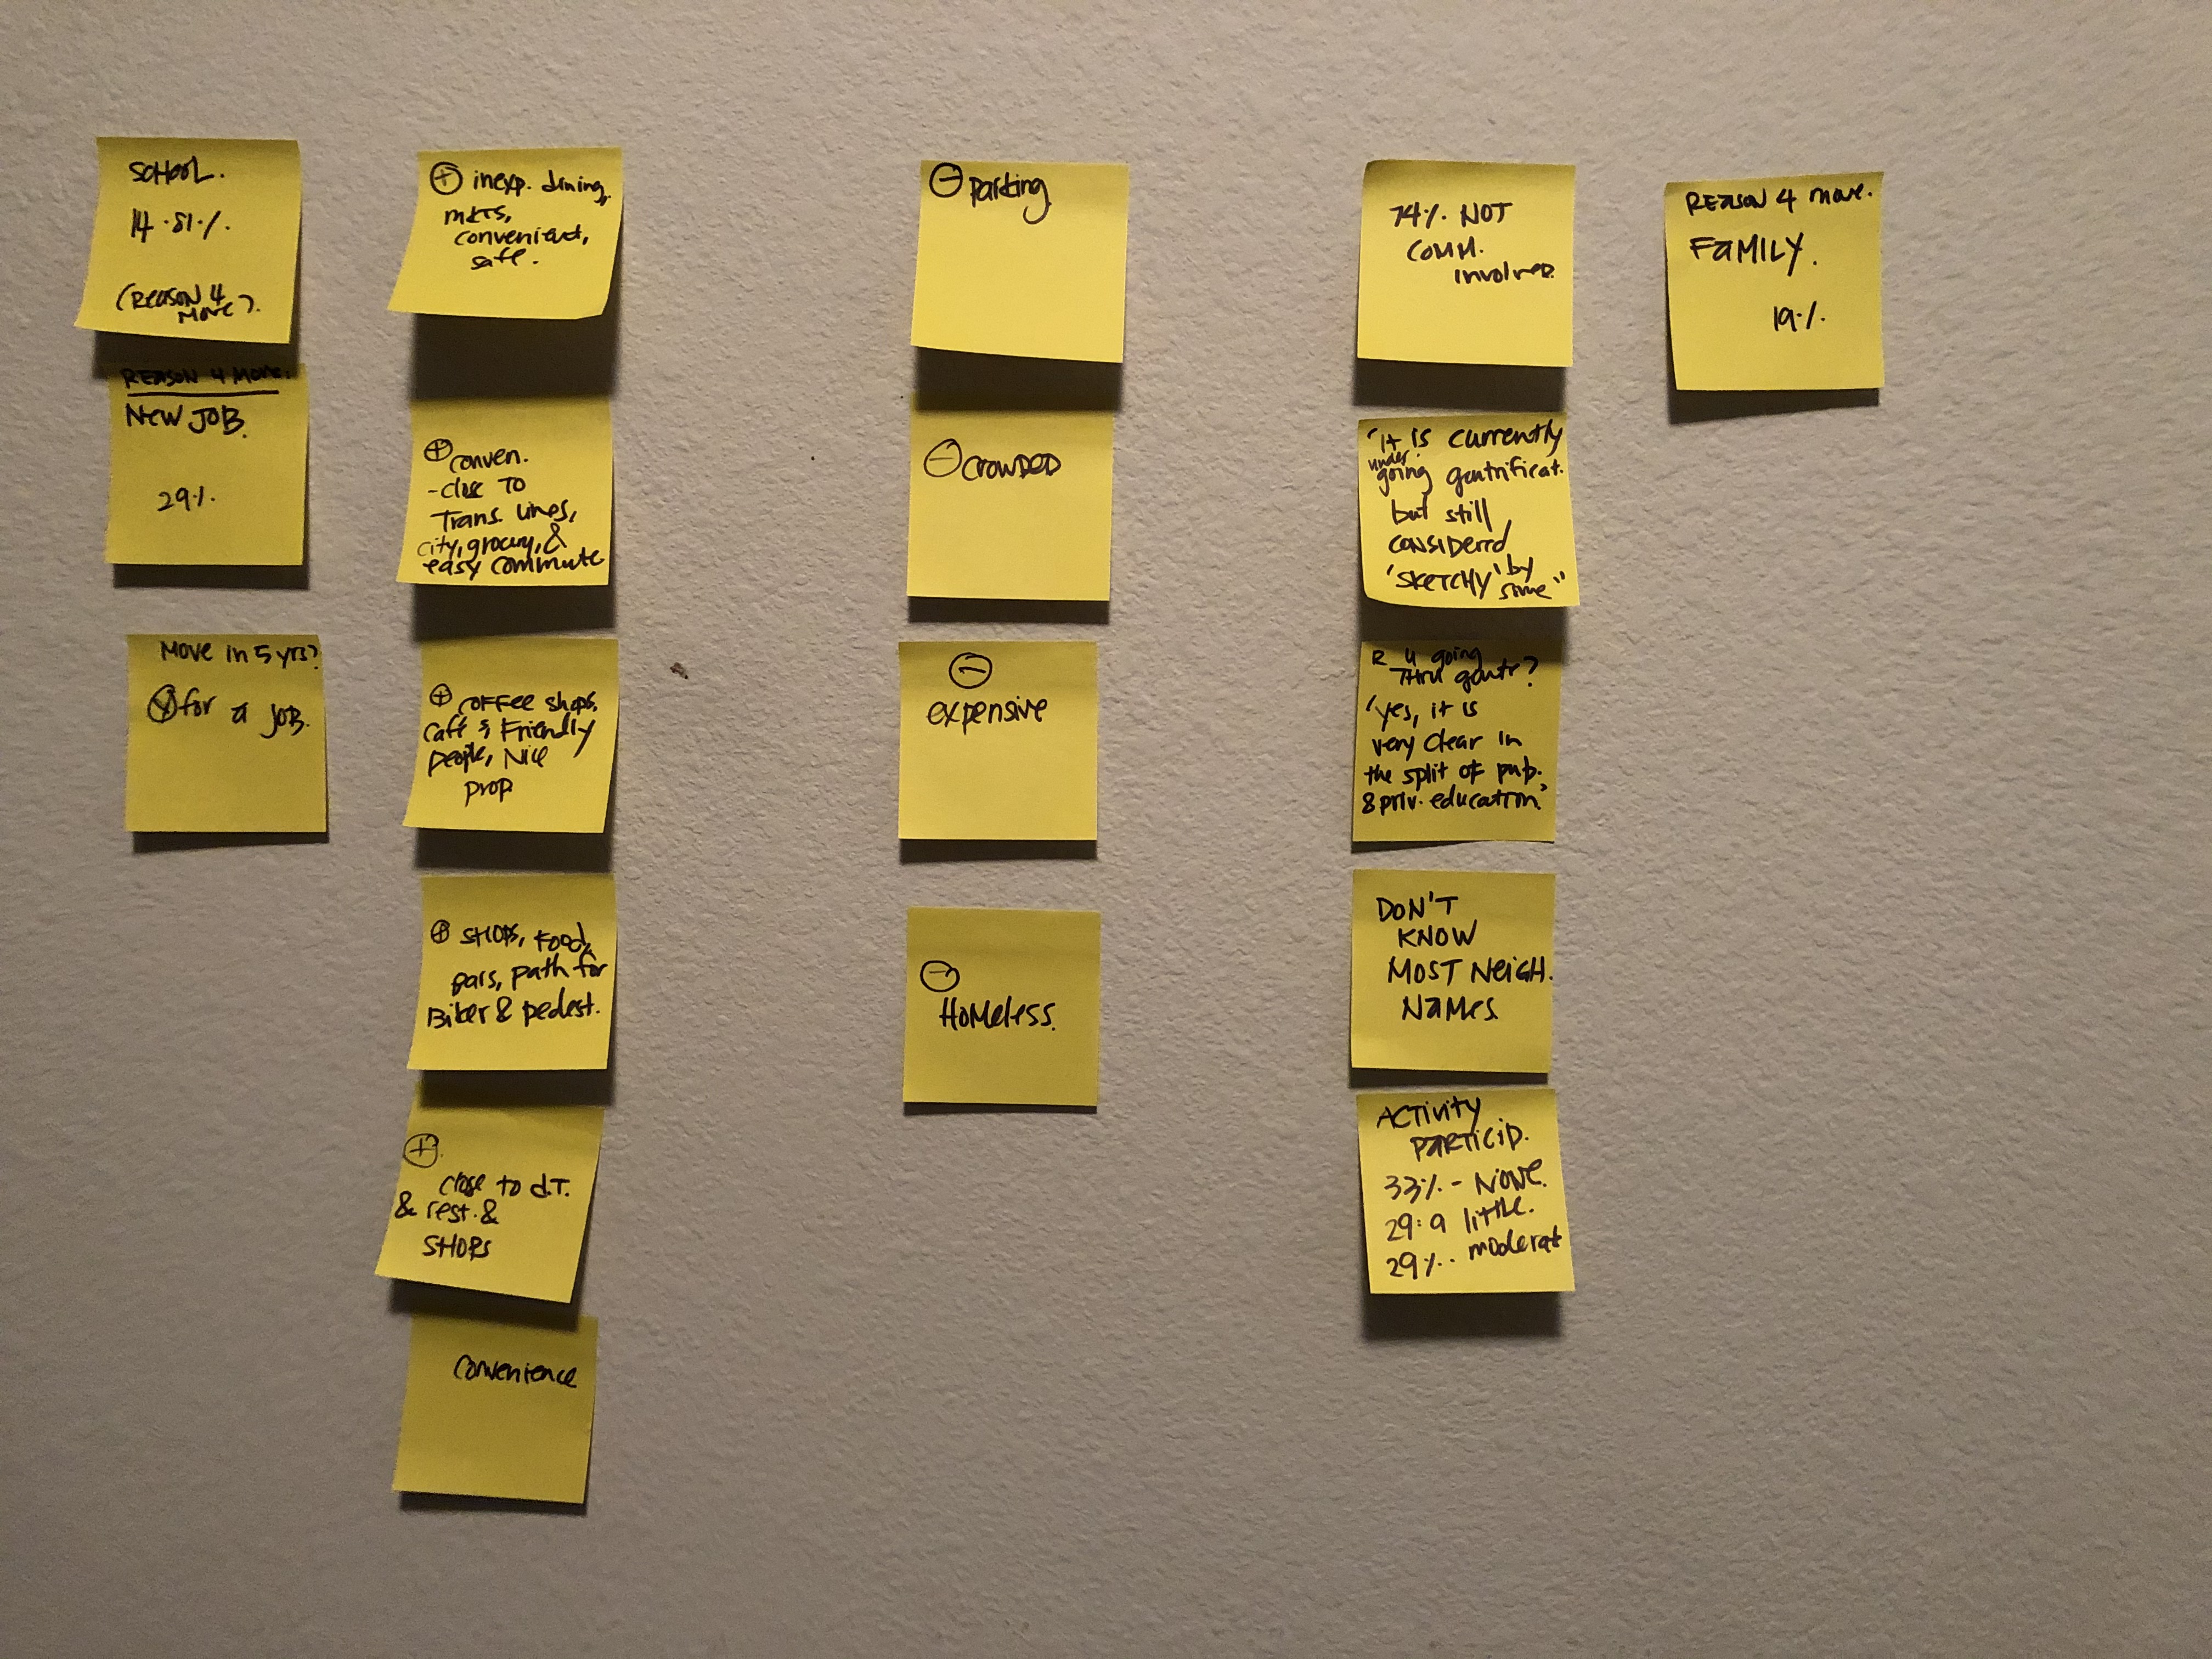 SCHOOL.
14.81%.
(REASON 4
MOVE).
REASON 4 MOVE:
NEW JOB.
29%.
MOVE in 5 yrs?
Ⓨ for a JOB.
⊕ inexp. dining,
mkts,
convenient,
safe.
⊕ conven.
- close TO
Trans. lines,
city, grocery, &
easy commute
⊕ COFFEE shops,
safe & Friendly
people, Nice
prop
⊕ SHOPS, FOOD,
bars, path for
Biker & pedest.
⊕
close to d.T.
& rest. &
SHOPS
Convenience
⊖ parking
⊖ CROWDED
⊖
expensive
⊖
Homeless.
74% NOT
COMM.
involved.
"it is currently
under
going gentrificat.
but still
CONSIDERED
'SKETCHY' by
some"
R U going
THRU gentr?
"yes, it is
very clear in
the split of pub.
& priv. education."
DON'T
KNOW
MOST NEIGH.
NAMES
ACTIVITY
PARTICIP.
33% - NONE.
29.9 little.
29% .. moderat
REASON 4 move.
FAMILY.
19%.